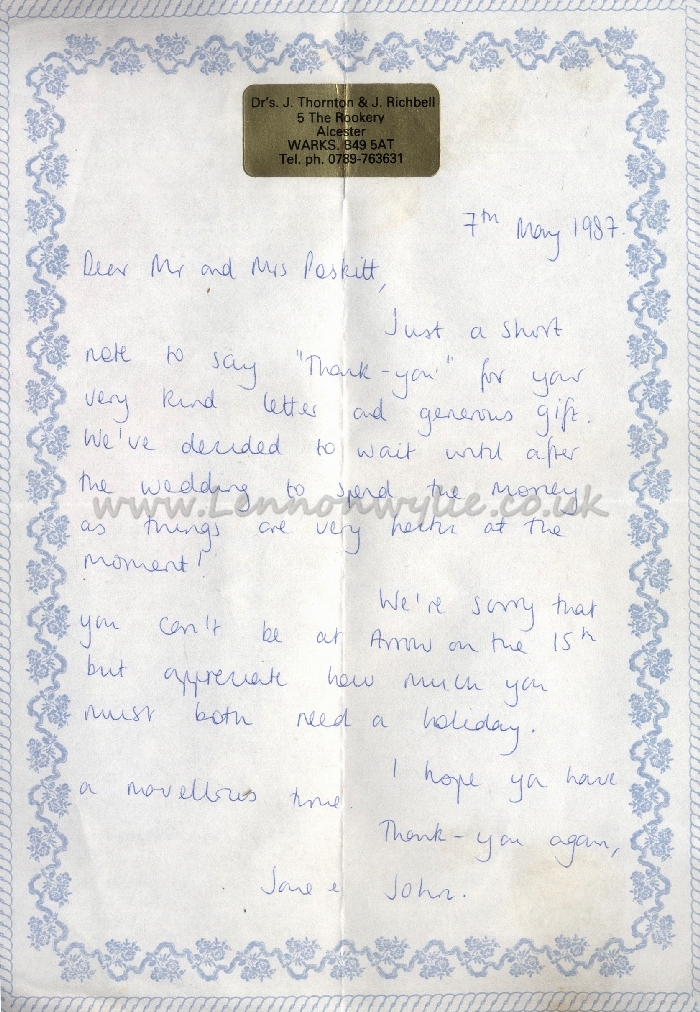 Dr's. J. Thornton & J. Richbell
5 The Rookery
Alcester
WARKS. B49 5AT
Tel. ph. 0789-763631
7th May 1987.
Dear Mr and Mrs Poskitt,
Just a short
note to say "Thank-you" for your
very kind letter and generous gift.
We've decided to wait until after
the wedding to spend the money
www.Lennonwylie.co.uk
as things are very hectic at the
moment!
We're sorry that
you can't be at Arrow on the 15th
but appreciate how much you
must both need a holiday.
I hope you have
a marvellous time.
Thank-you again,
Jane & John.